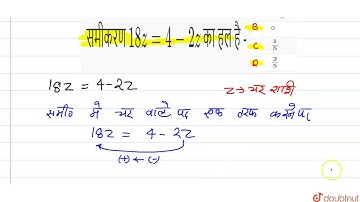 समीकरण 18z = 4 - 2z का हल है -
B 0
C 1/5
D 2/5
18z = 4 - 2z
z → चर राशी
समी० में चर वाले पद एक तरफ करने पर
18z = 4 - 2z
(+) ← (-)
doubtnut